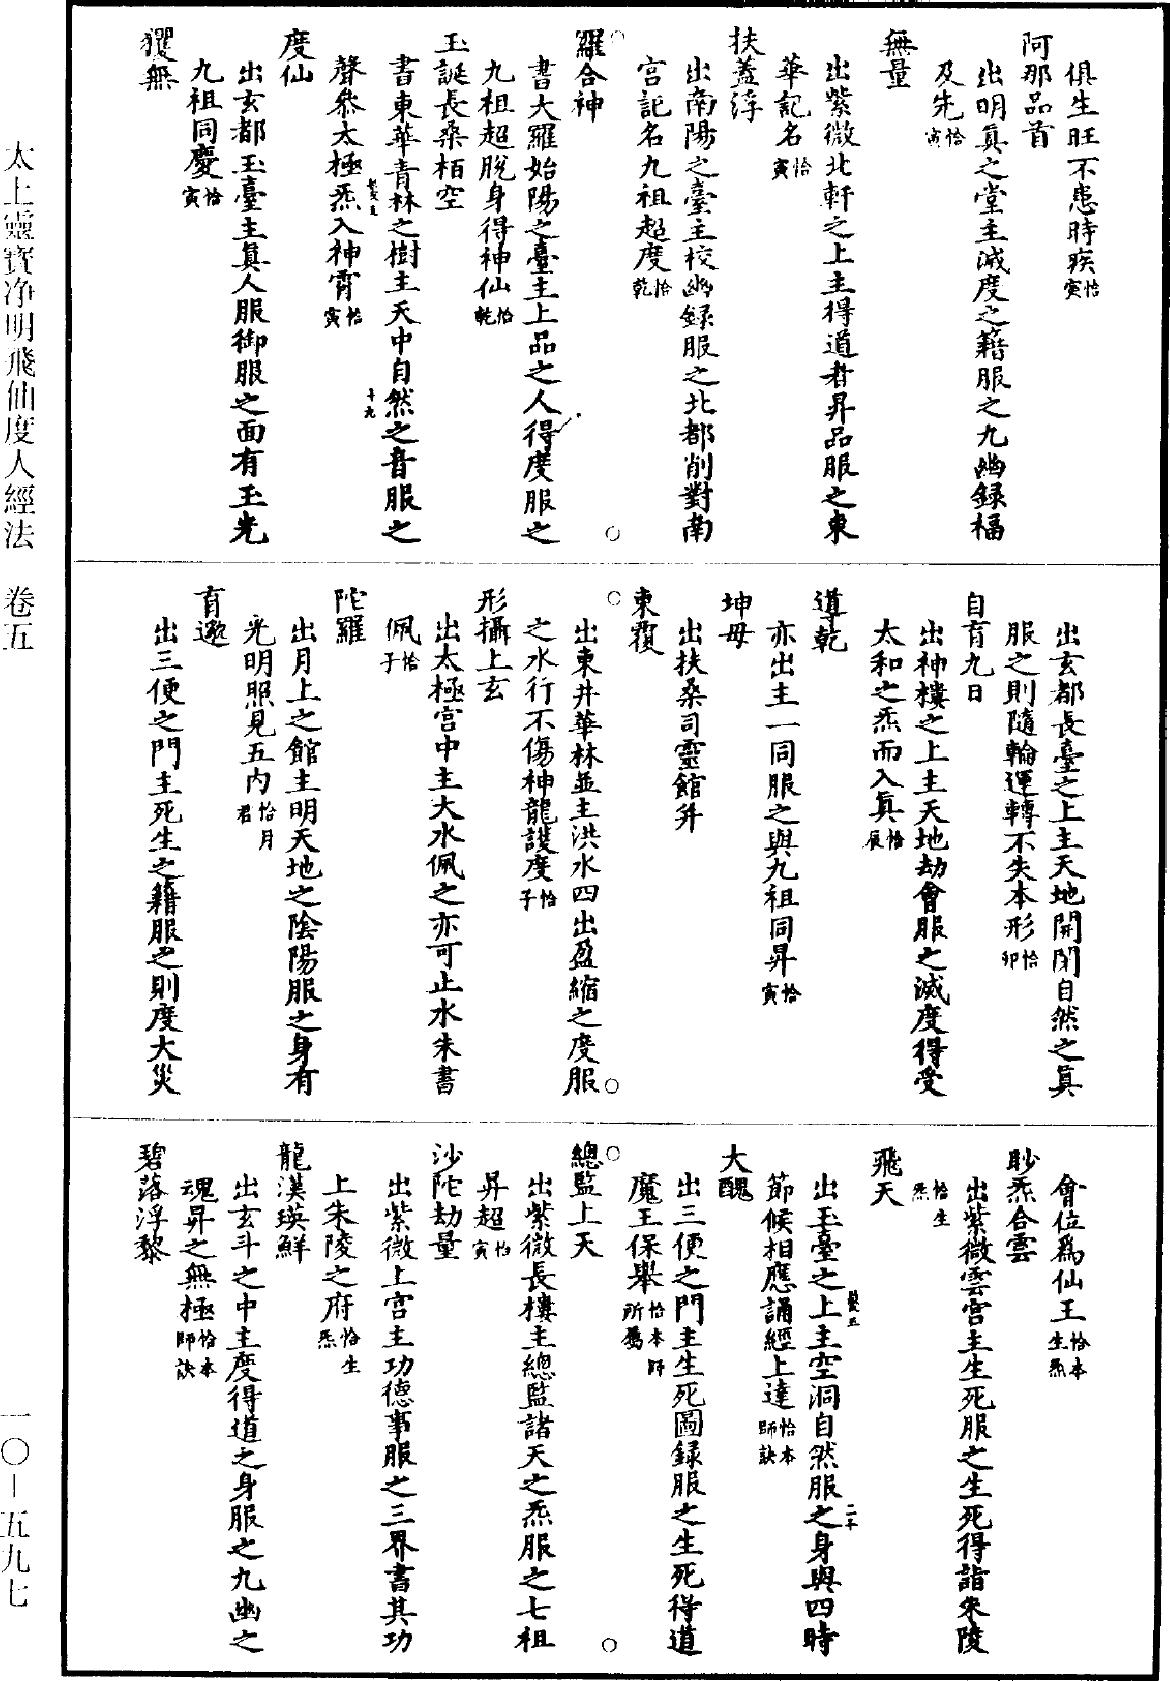 俱生旺不患時疾恰寅
阿那品首
出明真之堂主滅度之籍服之九幽録福
及先恰寅
無量
出紫微北軒之上主得道者昇品服之東
華記名恰寅
扶蓋浮
出南陽之臺主校幽録服之北都削對南
宫記名九祖超度恰乾
羅合神
書大羅始陽之臺主上品之人得度服之
九祖超脱身得神仙恰乾
玉誕長桑栢空
書東華青林之樹主天中自然之音服之
聲參太極炁入神霄恰寅
度仙
出玄都玉臺主真人服御服之面有玉光
九祖同慶恰寅
玃無
出玄都長臺之上主天地開閉自然之真
服之則隨輪運轉不失本形恰卯
自育九日
出神樓之上主天地劫會服之滅度得受
太和之炁而入真恰辰
道乾
亦出主一同服之與九祖同昇恰寅
坤母
出扶桑司靈館并
東覆
出東井華林並主洪水四出盈縮之度服
之水行不傷神龍護度恰子
形攝上玄
出太極宫中主大水佩之亦可止水朱書
佩恰子
陀羅
出月上之館主明天地之陰陽服之身有
光明照見五内恰月君
育邈
出三便之門主死生之籍服之則度大災
會位爲仙王恰本生炁
眇炁合雲
出紫微雲宫主生死服之生死得詣朱陵
恰生炁
飛天
出玉臺之上主空洞自然服之身與四時
節候相應誦經上達恰本師訣
大醜
出三便之門主生死圖録服之生死得道
魔王保舉恰本師所屬
總監上天
出紫微長樓主總監諸天之炁服之七祖
昇超恰寅
沙陀劫量
出紫微上宫主功德事服之三界書其功
上朱陵之府恰生炁
龍漢瑛鮮
出玄斗之中主度得道之身服之九幽之
魂昇之無極恰本師訣
碧落浮黎
太上靈寶净明飛仙度人經法 卷五
一〇－五九七